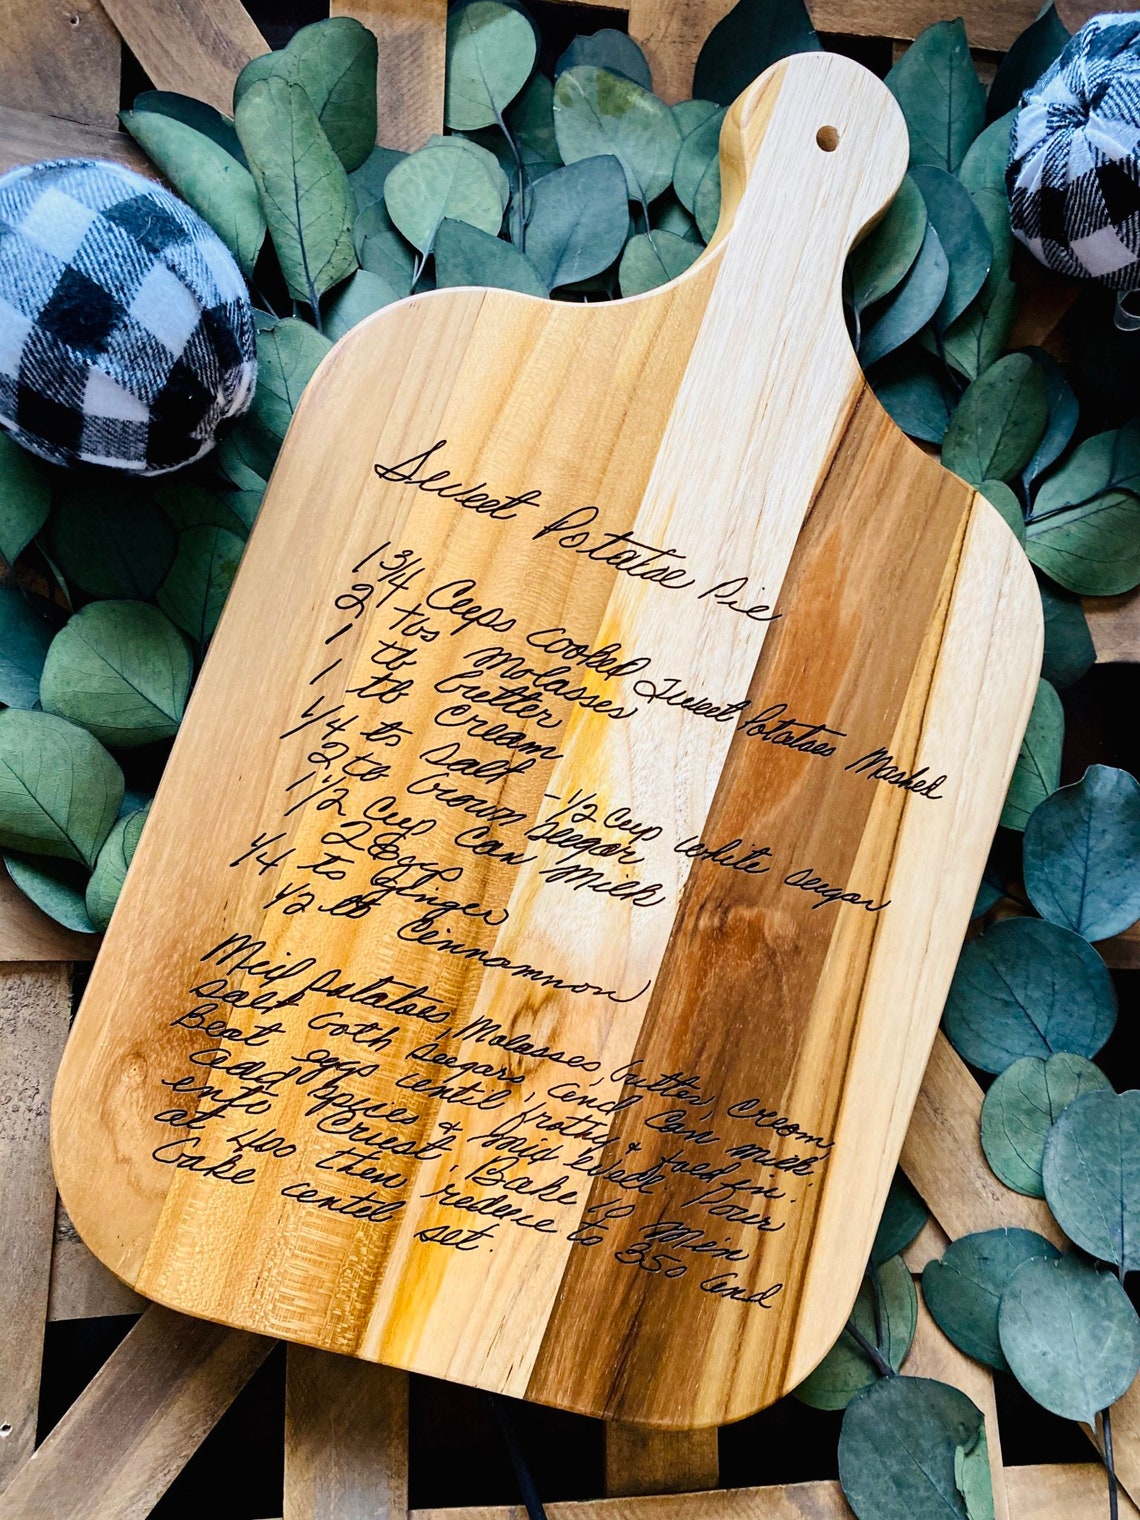 Sweet Potatoe Pie
1 3/4 Cups cooked Sweet Potatoes Mashed
2 tbs Molasses
1 tb butter
1 tb Cream
1/4 ts Salt - 1/2 Cup white sugar
2 tb brown sugar
1 1/2 Cup Can Milk
2 Eggs
1/4 ts Ginger
1/2 tb Cinnamnon
Mix Potatoes, Molasses, butter, cream,
Salt both sugars, and Can milk.
Beat eggs until frothy & add in.
add spices & mix well Pour
into Crust, Bake 10 Min
at 400 then reduce to 350 and
bake until set.